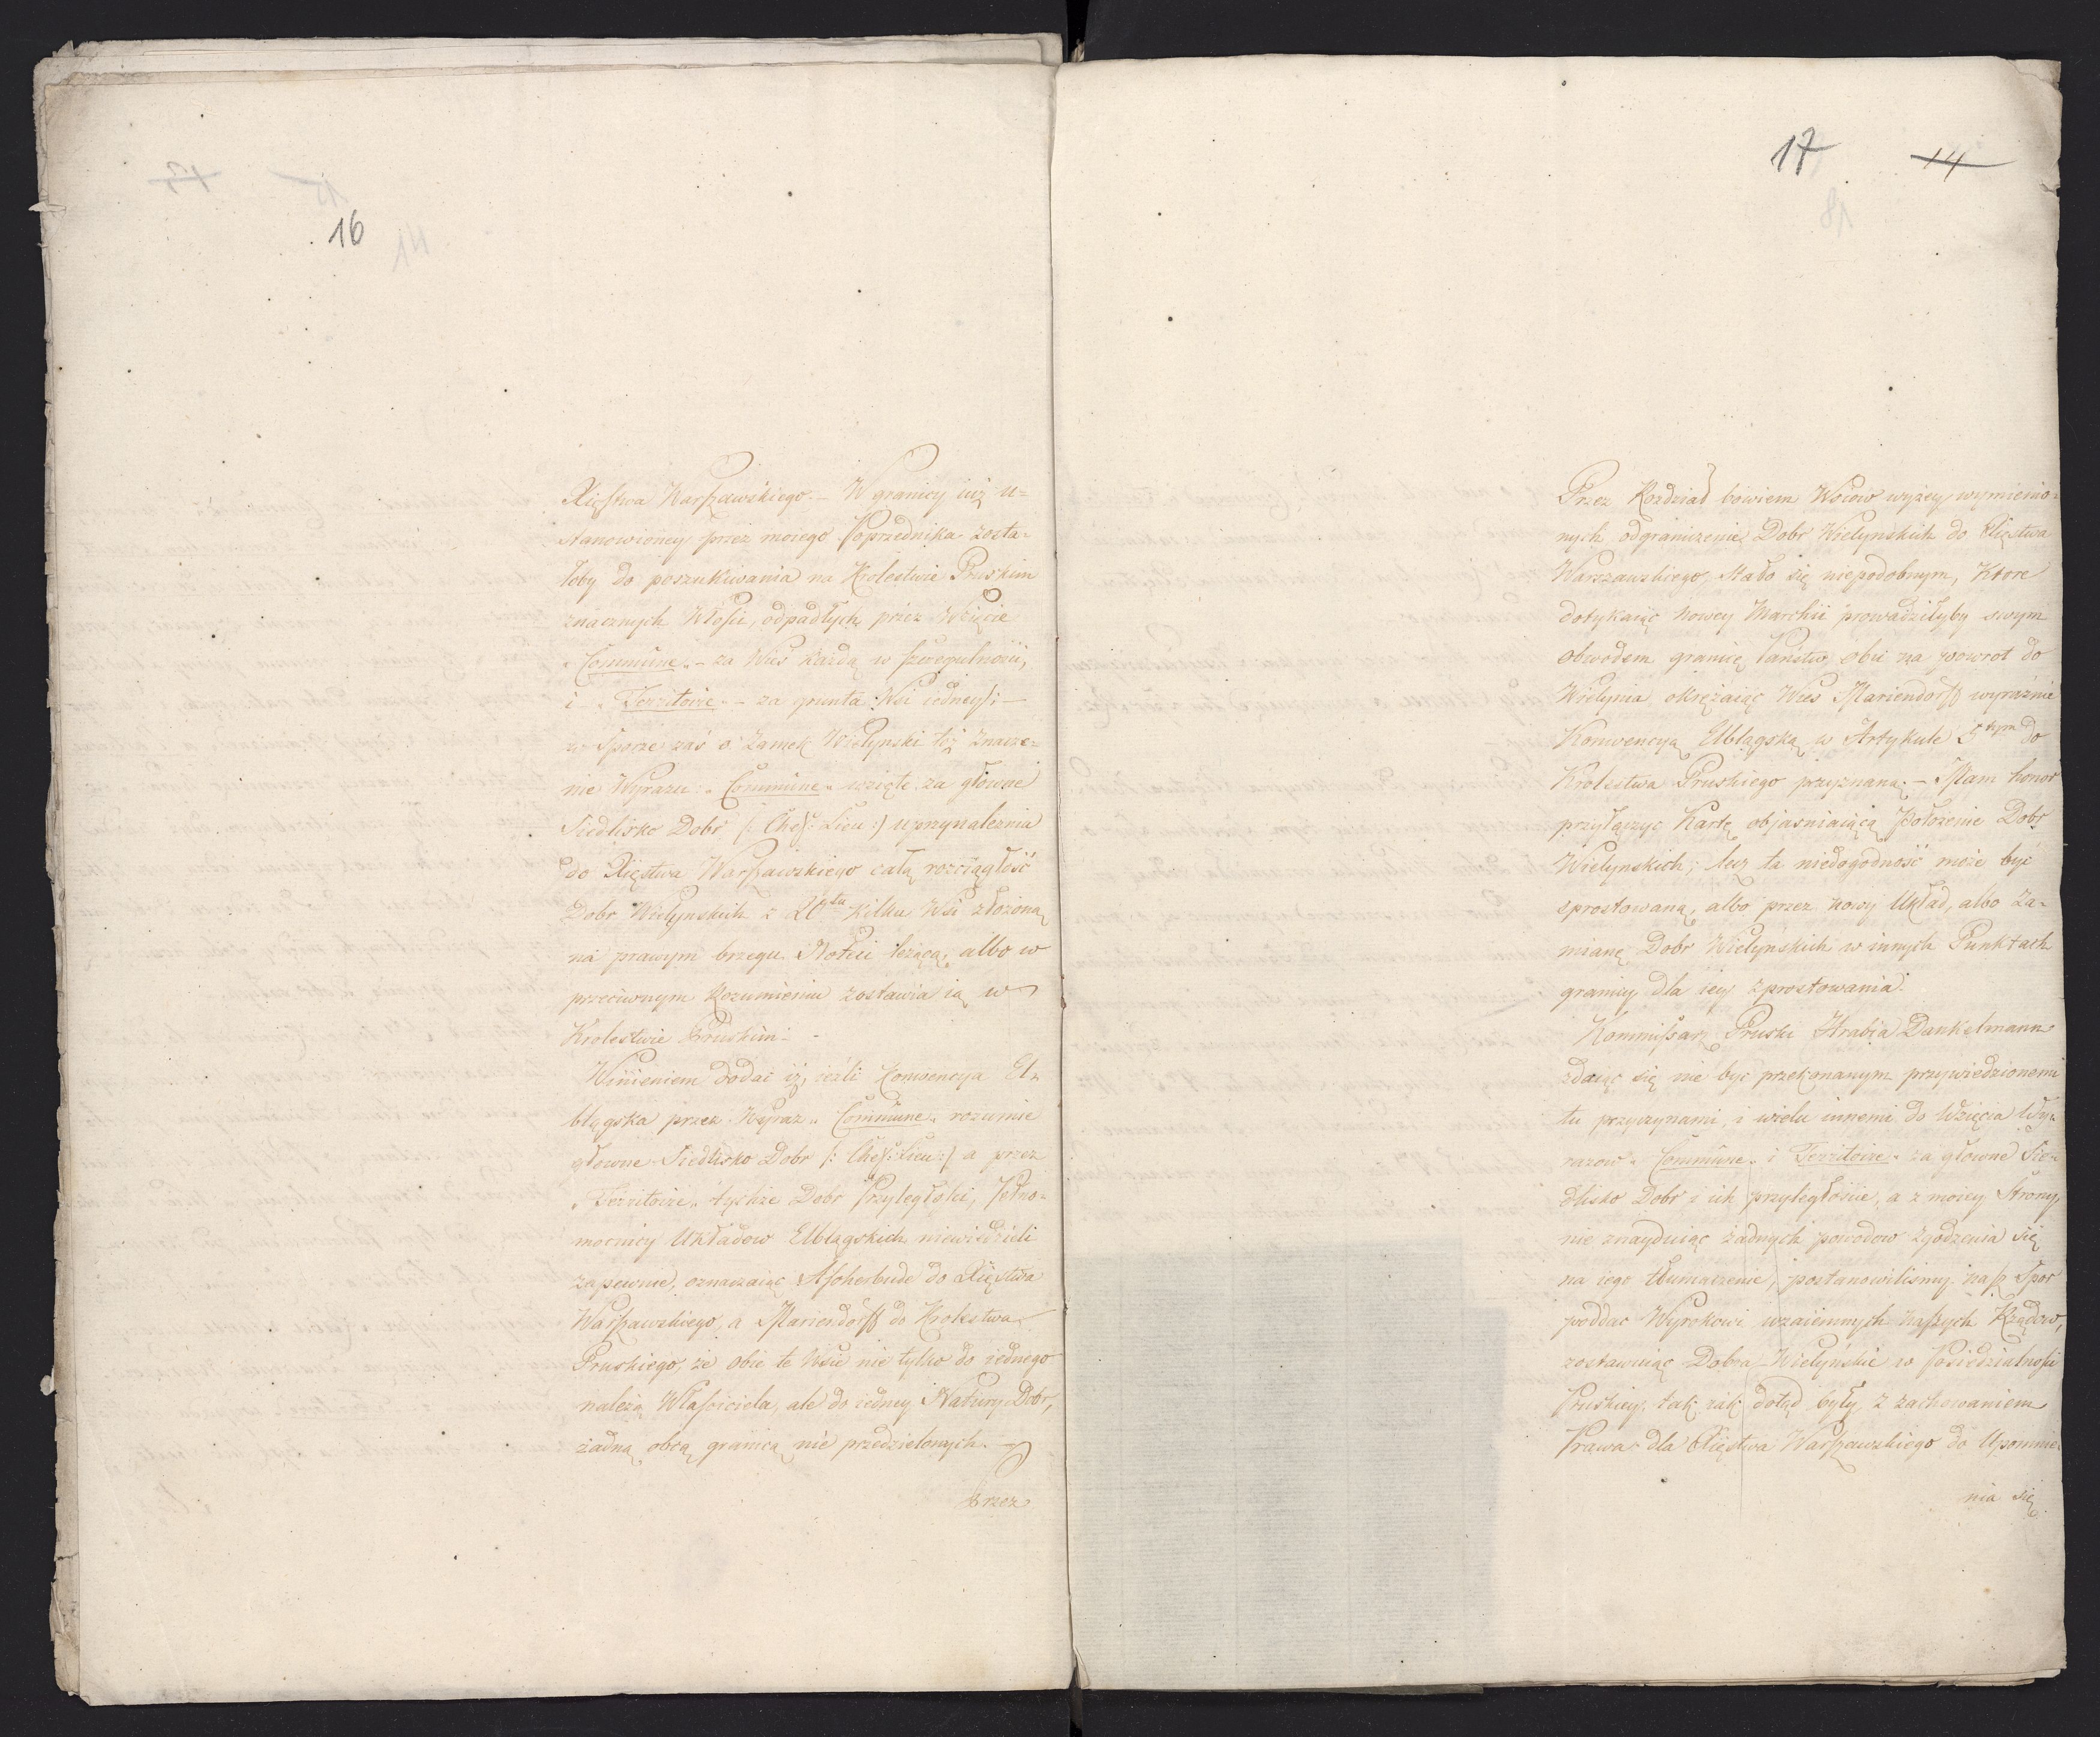 16
Xięstwa Warszawskiego. – W granicy iuż u-
stanowioney przez moiego Poprzednika zosta-
łoby do poszukiwania na Krolestwie Pruskim
znacznych Włości, odpadłych przez Wzięcie
„Commune„ – za Wieś każdą w szczegulności,
i „Territoire„ – za grunta Wsi iedney: –
w Sporze zaś o Zamek Wielynski też znacze-
nie Wyrazu „Commune„ wzięte za głowne
Siedlisko Dobr /: Chef: Lieu :/ uprzynależnia
do Xięstwa Warszawskiego całą rozciągłość
Dobr Wielynskich z 20tu kilku Wsi złożoną
na prawym brzegu Noteci leżącą, albo w
przeciwnym Rozumieniu zostawia ią w
Krolestwie Pruskim. –
Winienem dodać iż, ieźli Konwencya El-
blągska przez Wyraz „Commune„ rozumie
głowne Siedlisko Dobr /: Chef: Lieu :/ a przez
„Territoire„ tychże Dobr Przyległości, Pełno-
mocnicy Układow Elblągskich niewiedzieli
zapewnie, oznaczaiąc Ascherbude do Xięstwa
Warszawskiego, a Mariendorff do Krolestwa
Pruskiego, że obie te Wsie nie tylko do iednego
należą Właściciela, ale do iedney Natury Dobr,
żadną obcą granicą nie przedzielonych. –
Przez
17 14
Przez Rozdział bowiem Wsiow wyżey wymienio-
nych odgraniczenie Dobr Wielynskich do Xięstwa
Warszawskiego, stało się niepodobnym, Ktore
dotykaiąc Nowey Marchii prowadziłyby swym
obwodem granicę Państw obu na powrot do
Wielynia okrężaiąc Wieś Mariendorff wyraźnie
Konwencyą Elblągską w Artykule 5tym do
Krolestwa Pruskiego przyznaną. – Mam honor
przyłączyc Kartę objasniaiącą Położenie Dobr
Wielynskich; lecz ta niedogodność może być
sprostowaną, albo przez nowy Układ, albo Za-
mianę Dobr Wielynskich w innych Punktach
granicy dla iey sprostowania.
Kommissarz Pruski Hrabia Dankelmann
zdaiąc się nie byc przekonanym przywiedzionemi
tu przyczynami, i wielu innemi do Wzięcia Wy-
razow „Commune„ i „Territoire„ za głowne Sie-
dlisko Dobr i ich przyległości, a z moiey Strony,
nie znayduiąc żadnych powodow zgodzenia się
na iego tłumaczenie, postanowilismy nasz Spor
poddac Wyrokowi wzaiemnych naszych Rządow,
zostawuiąc Dobra Wielyńskie w Posiedzialności
Pruskiey, tak iak dotąd były z zachowaniem
Prawa dla Xięstwa Warszawskiego do Upomnie-
nia się